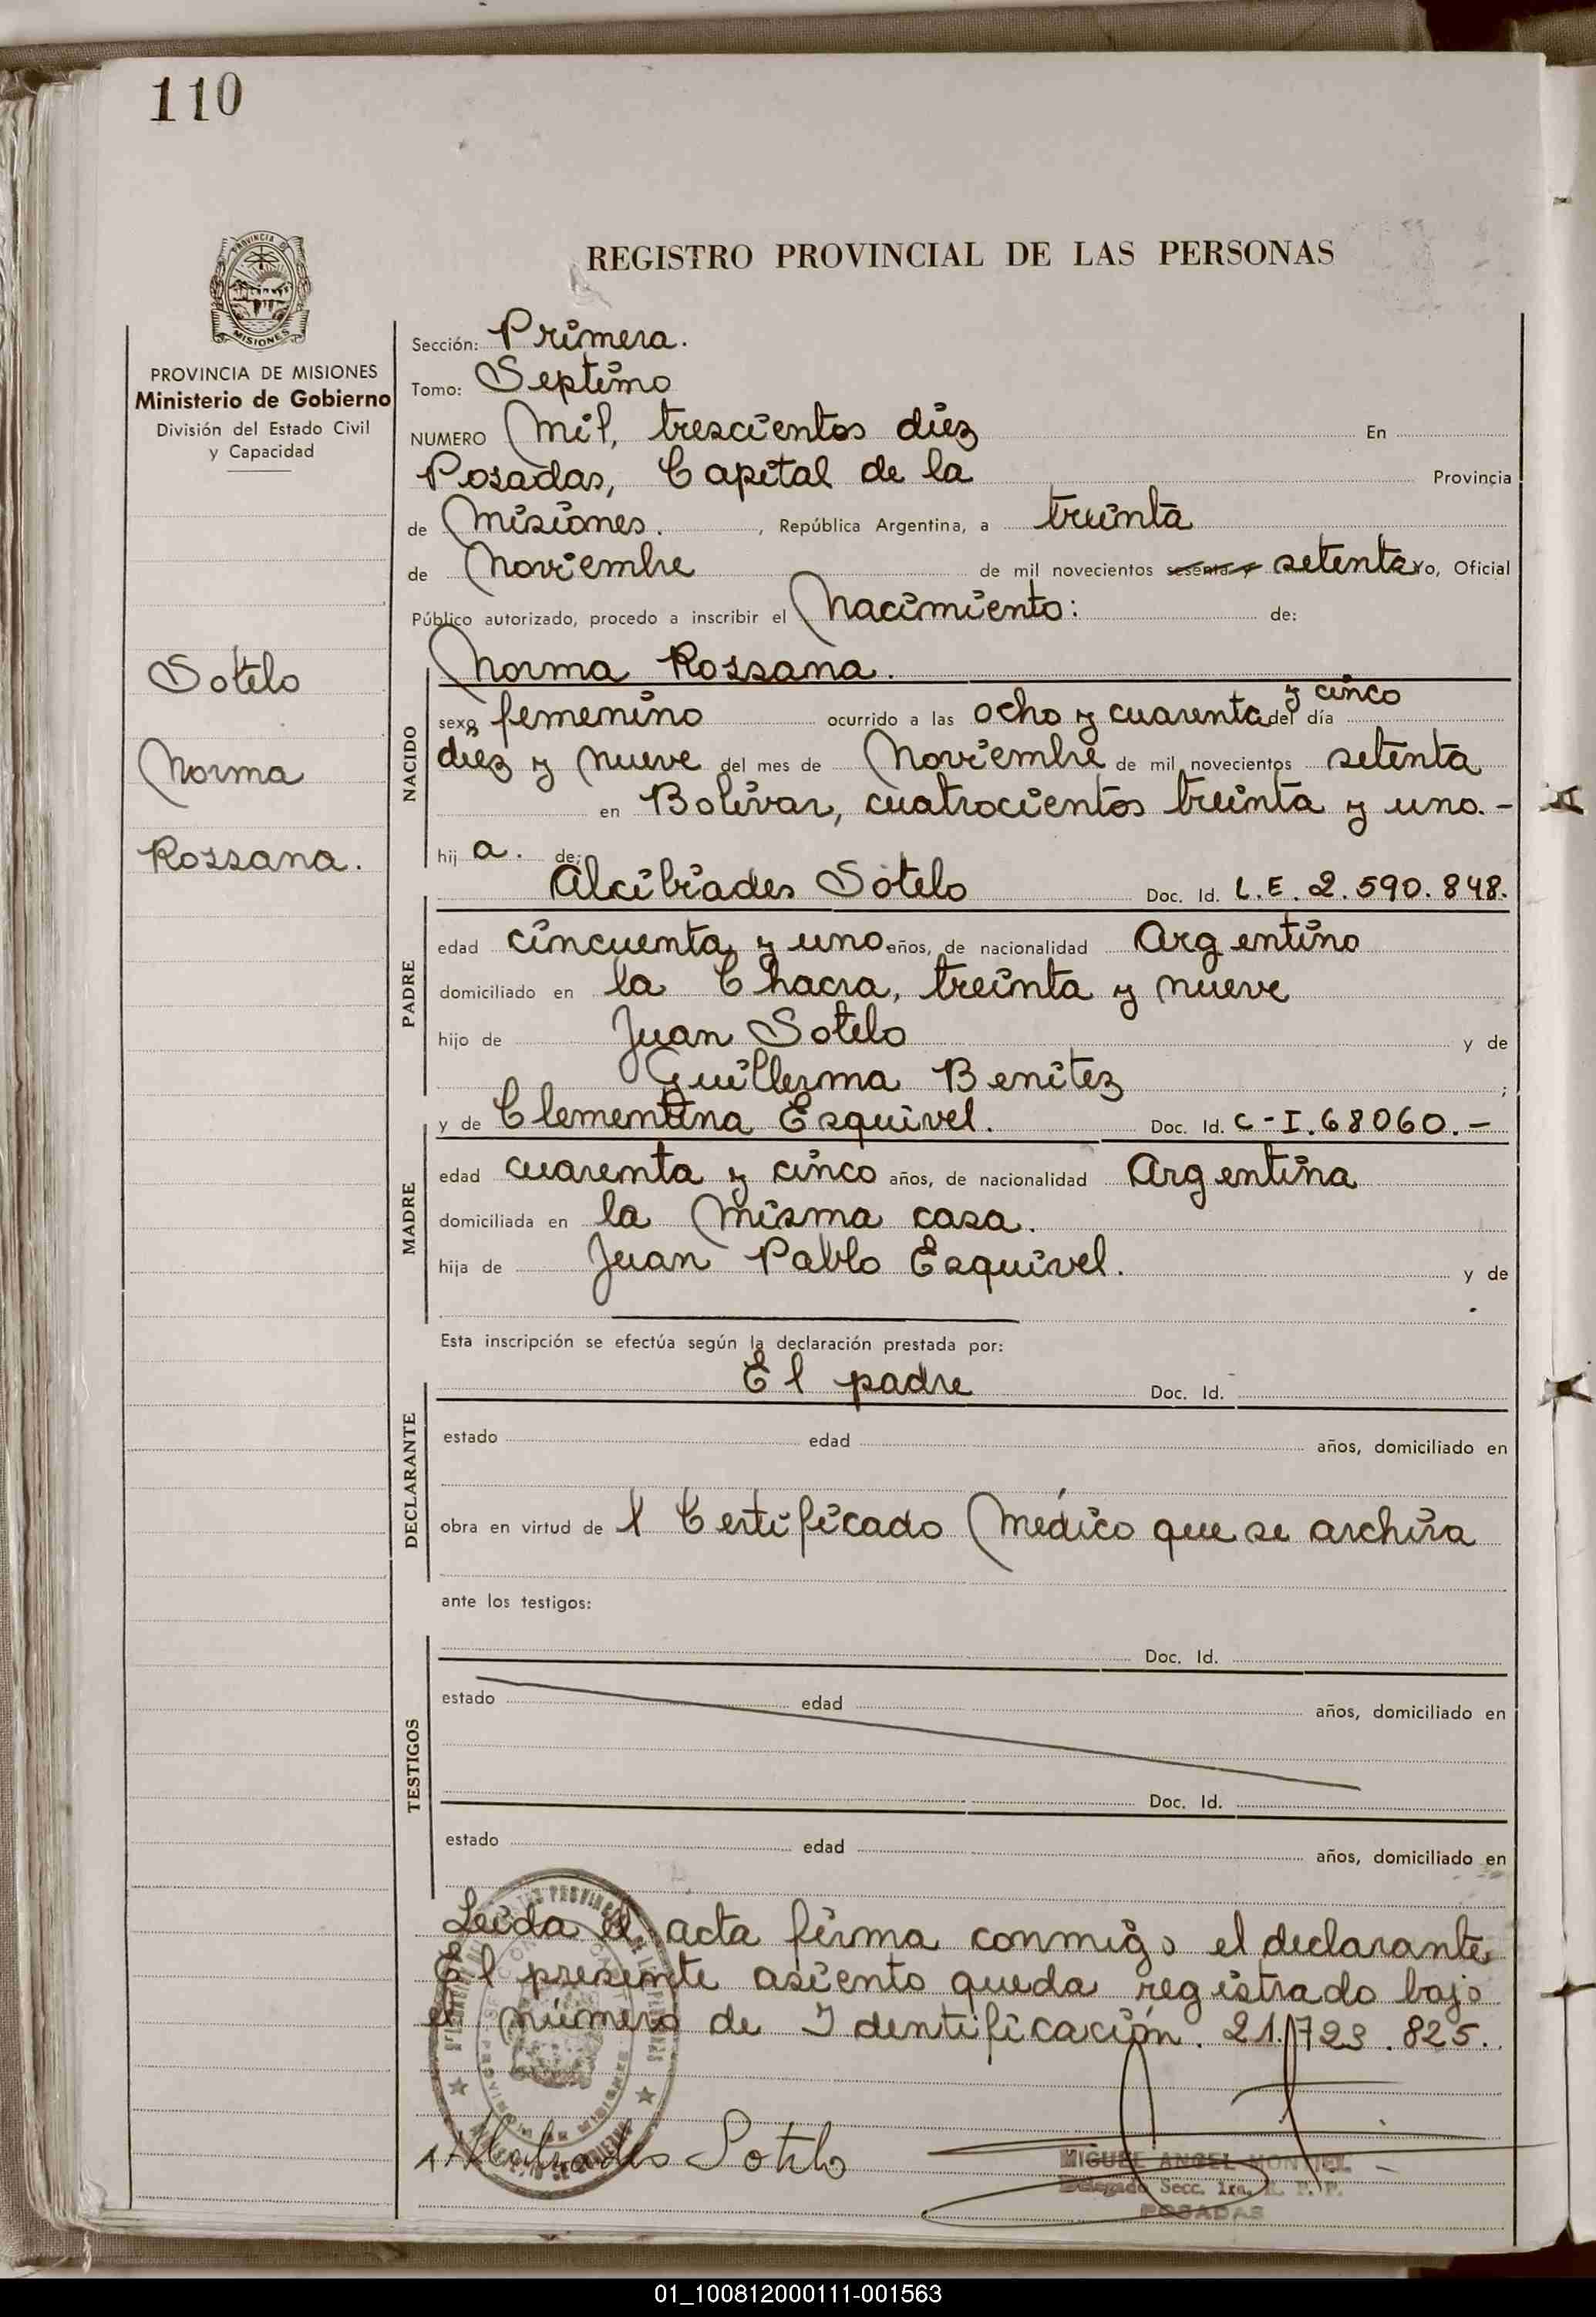 110
PROVINCIA DE
MISIONES
REGISTRO PROVINCIAL DE LAS PERSONAS
PROVINCIA DE MISIONES
Ministerio de Gobierno
División del Estado Civil
y Capacidad
Sotelo
Norma
Rossana.
Sección: Primera.
Tomo: Septimo
NUMERO Mil, trescientos diez En
Posadas, Capital de la Provincia
de Misiones. , República Argentina, a treinta
de Noviembre de mil novecientos sesenta y setenta Yo, Oficial
Público autorizado, procedo a inscribir el Nacimiento: de:
Norma Rossana.
NACIDO
sexo femenino ocurrido a las ocho y cuarenta y cinco del día
diez y nueve del mes de Noviembre de mil novecientos setenta
en Bolivar, cuatrocientos treinta y uno.-
hij a. de:
Alcibiades Sotelo Doc. Id. L.E. 2.590.848.
PADRE
edad cincuenta y uno años, de nacionalidad Argentino
domiciliado en la Chacra, treinta y nueve
hijo de Juan Sotelo y de
Guillerma Benitez ;
y de Clementina Esquivel. Doc. Id. C-I.68060.-
MADRE
edad cuarenta y cinco años, de nacionalidad Argentina
domiciliada en la misma casa.
hija de Juan Pablo Esquivel. y de
Esta inscripción se efectúa según la declaración prestada por:
El padre Doc. Id.
DECLARANTE
estado edad años, domiciliado en
obra en virtud de l Certificado Médico que se archiva
ante los testigos:
Doc. Id.
TESTIGOS
estado edad años, domiciliado en
Doc. Id.
estado edad años, domiciliado en
Leida el acta firma conmigo el declarante
El presente asiento queda registrado bajo
el número de Identificación. 21.723.825.
Alcibiades Sotelo
MIGUEL ANGEL MONTIEL
Delegado Secc. 1ra. R. P. P.
POSADAS
01_100812000111-001563